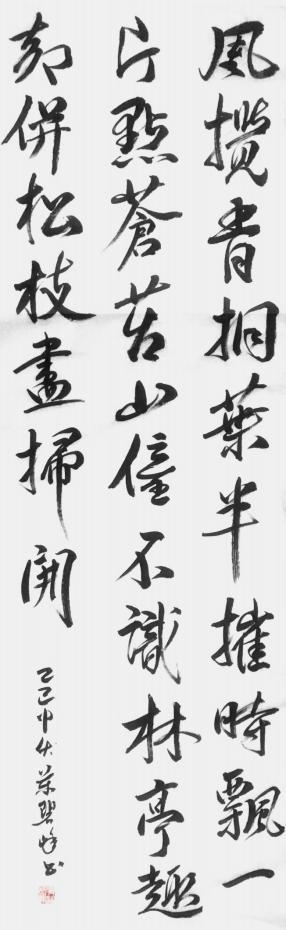 風攪青桐葉半摧時飄一
片點蒼苔山僮不識林亭趣
却併松枝盡掃開
乙巳中伏葉碧峰書